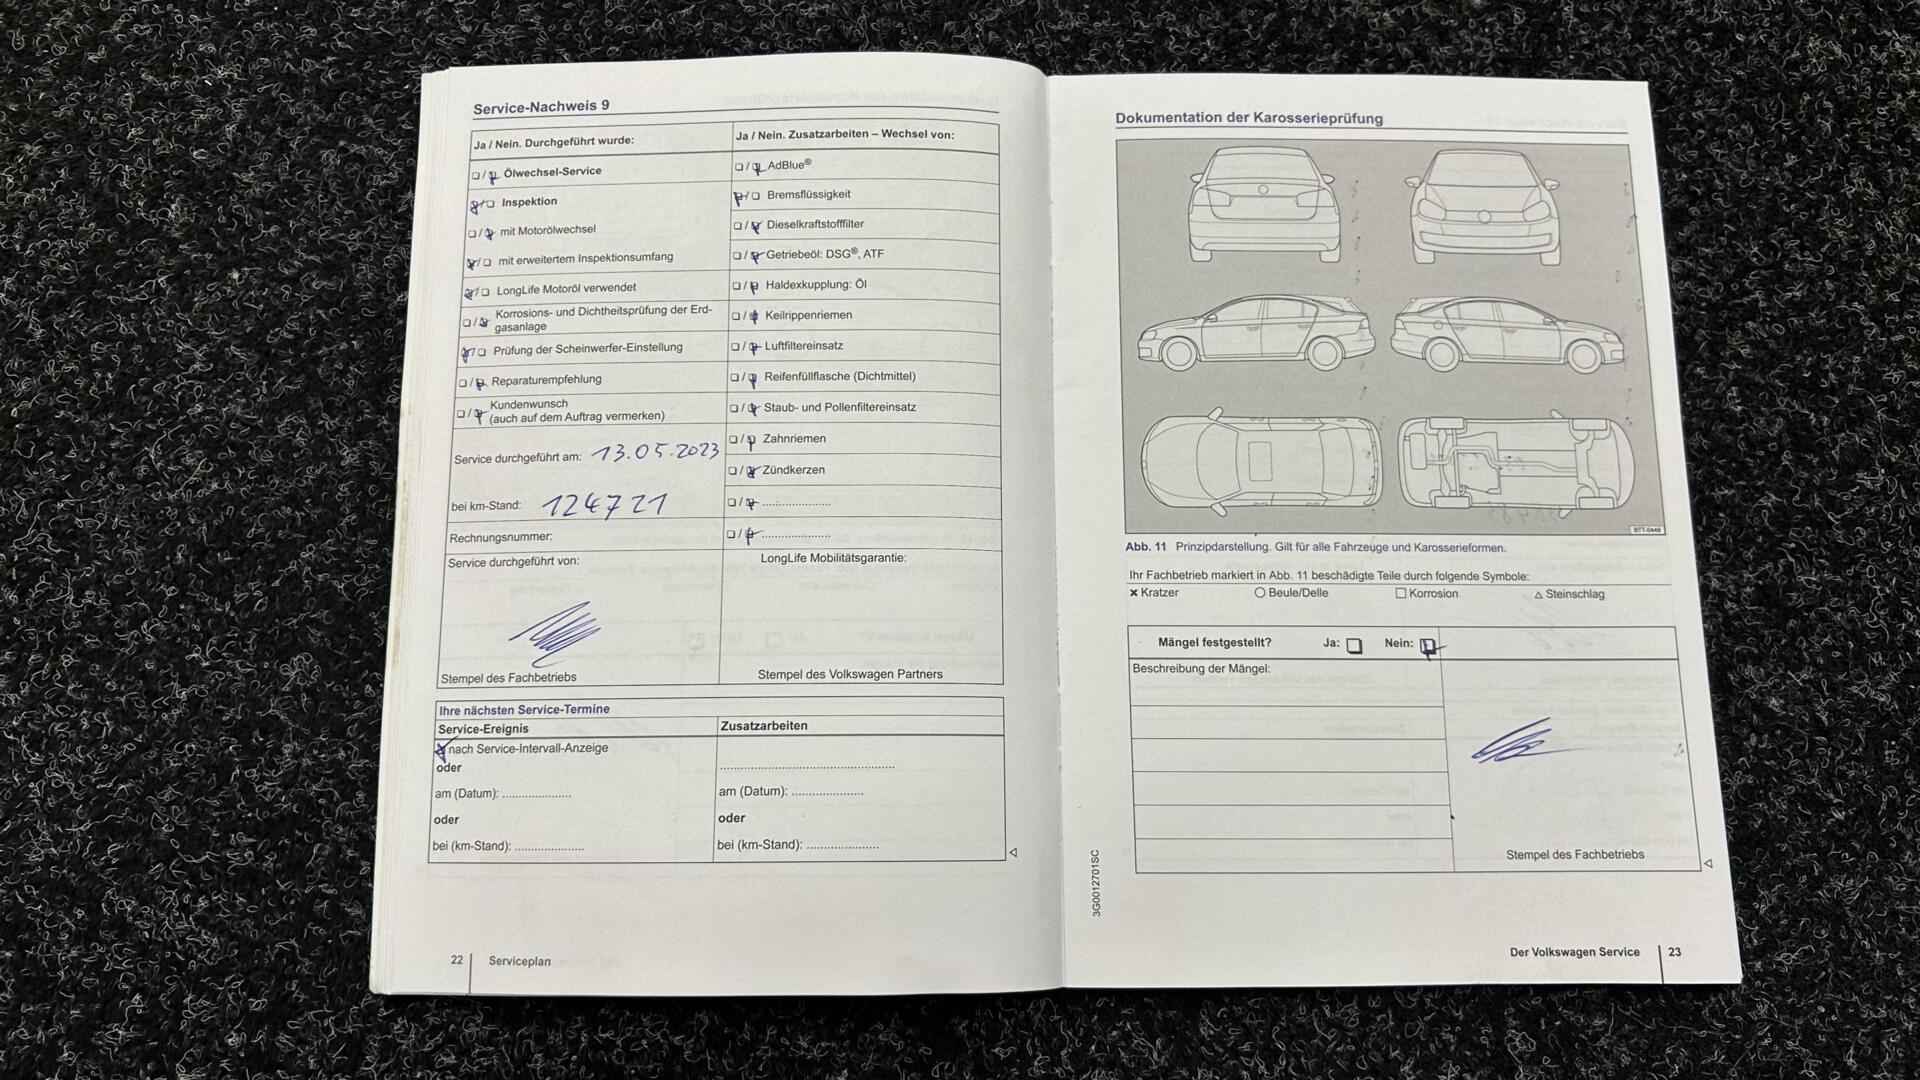 Service-Nachweis 9
Ja / Nein. Durchgeführt wurde:
Ölwechsel-Service
Inspektion
mit Motorölwechsel
mit erweitertem Inspektionsumfang
LongLife Motoröl verwendet
Korrosions- und Dichtheitsprüfung der Erd-
gasanlage
Prüfung der Scheinwerfer-Einstellung
Reparaturempfehlung
Kundenwunsch
(auch auf dem Auftrag vermerken)
Service durchgeführt am: 13.05.2023
bei km-Stand: 124721
Rechnungsnummer:
Service durchgeführt von:
Stempel des Fachbetriebs
Ja / Nein. Zusatzarbeiten – Wechsel von:
AdBlue®
Bremsflüssigkeit
Dieselkraftstofffilter
Getriebeöl: DSG®, ATF
Haldexkupplung: Öl
Keilrippenriemen
Luftfiltereinsatz
Reifenfüllflasche (Dichtmittel)
Staub- und Pollenfiltereinsatz
Zahnriemen
Zündkerzen
LongLife Mobilitätsgarantie:
Stempel des Volkswagen Partners
Ihre nächsten Service-Termine
Service-Ereignis
nach Service-Intervall-Anzeige
oder
am (Datum): ....................
oder
bei (km-Stand): ....................
Zusatzarbeiten
am (Datum): ....................
oder
bei (km-Stand): ....................
22 Serviceplan
Dokumentation der Karosserieprüfung
B7T-0448
Abb. 11 Prinzipdarstellung. Gilt für alle Fahrzeuge und Karosserieformen.
Ihr Fachbetrieb markiert in Abb. 11 beschädigte Teile durch folgende Symbole:
× Kratzer ○ Beule/Delle □ Korrosion △ Steinschlag
Mängel festgestellt? Ja: Nein:
Beschreibung der Mängel:
Stempel des Fachbetriebs
3G0012701SC
Der Volkswagen Service 23